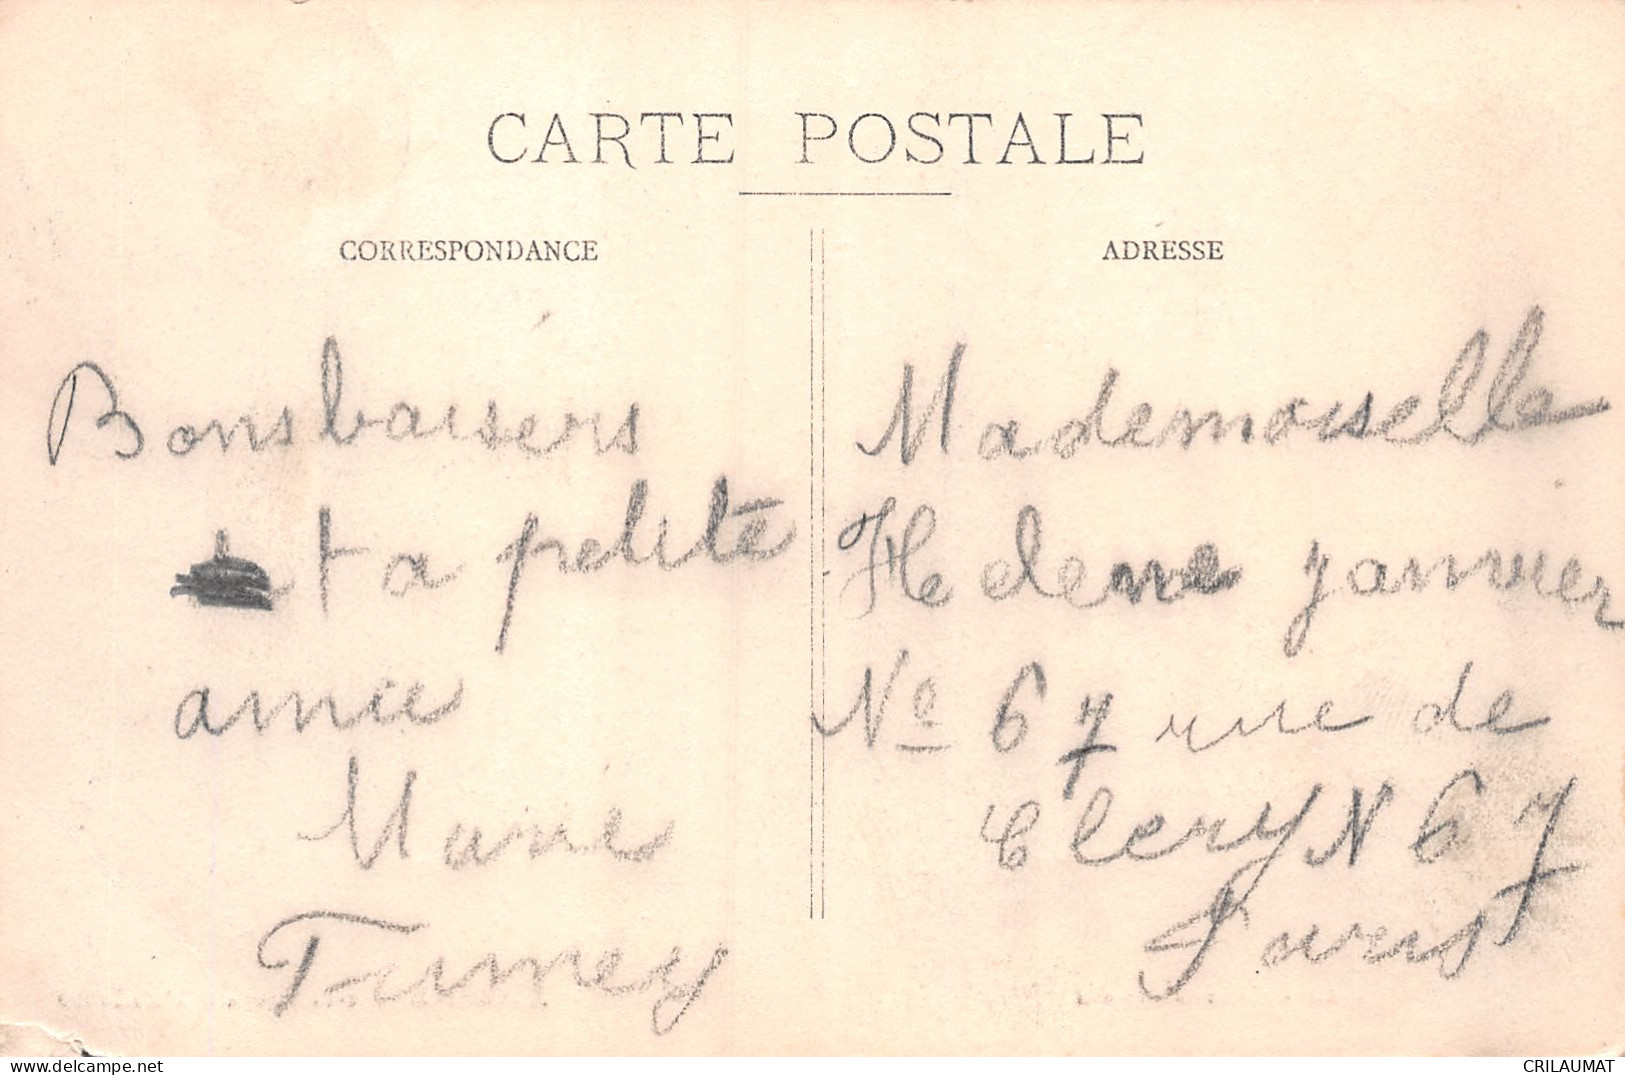 CARTE POSTALE
CORRESPONDANCE
Bons baisers
ta petite
amie
Marie
ADRESSE
Mademoiselle
Helene Janvier
Nº 67 rue de
Clery N 67
Paris
CRILAUMAT